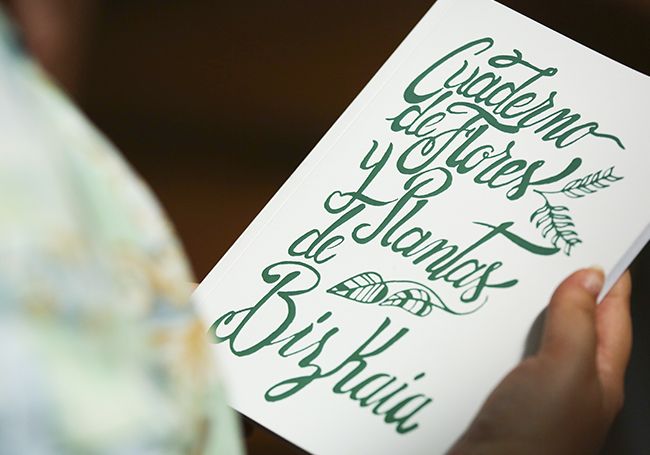 Cuaderno
de Flores
y Plantas
de
BizKaia